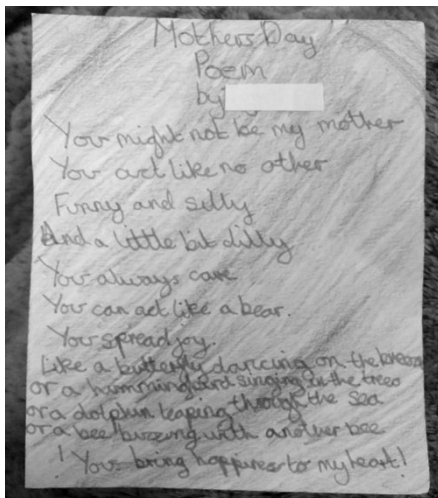 Mothers Day
Poem
by
You might not be my mother
You act like no other
Funny and silly
And a little bit dilly
You always care
You can act like a bear.
You spread joy.
Like a butterfly dancing on the breeze
or a hummingbird singing in the trees
or a dolphin leaping through the sea
or a bee buzzing with another bee
! You bring happiness to my heart!